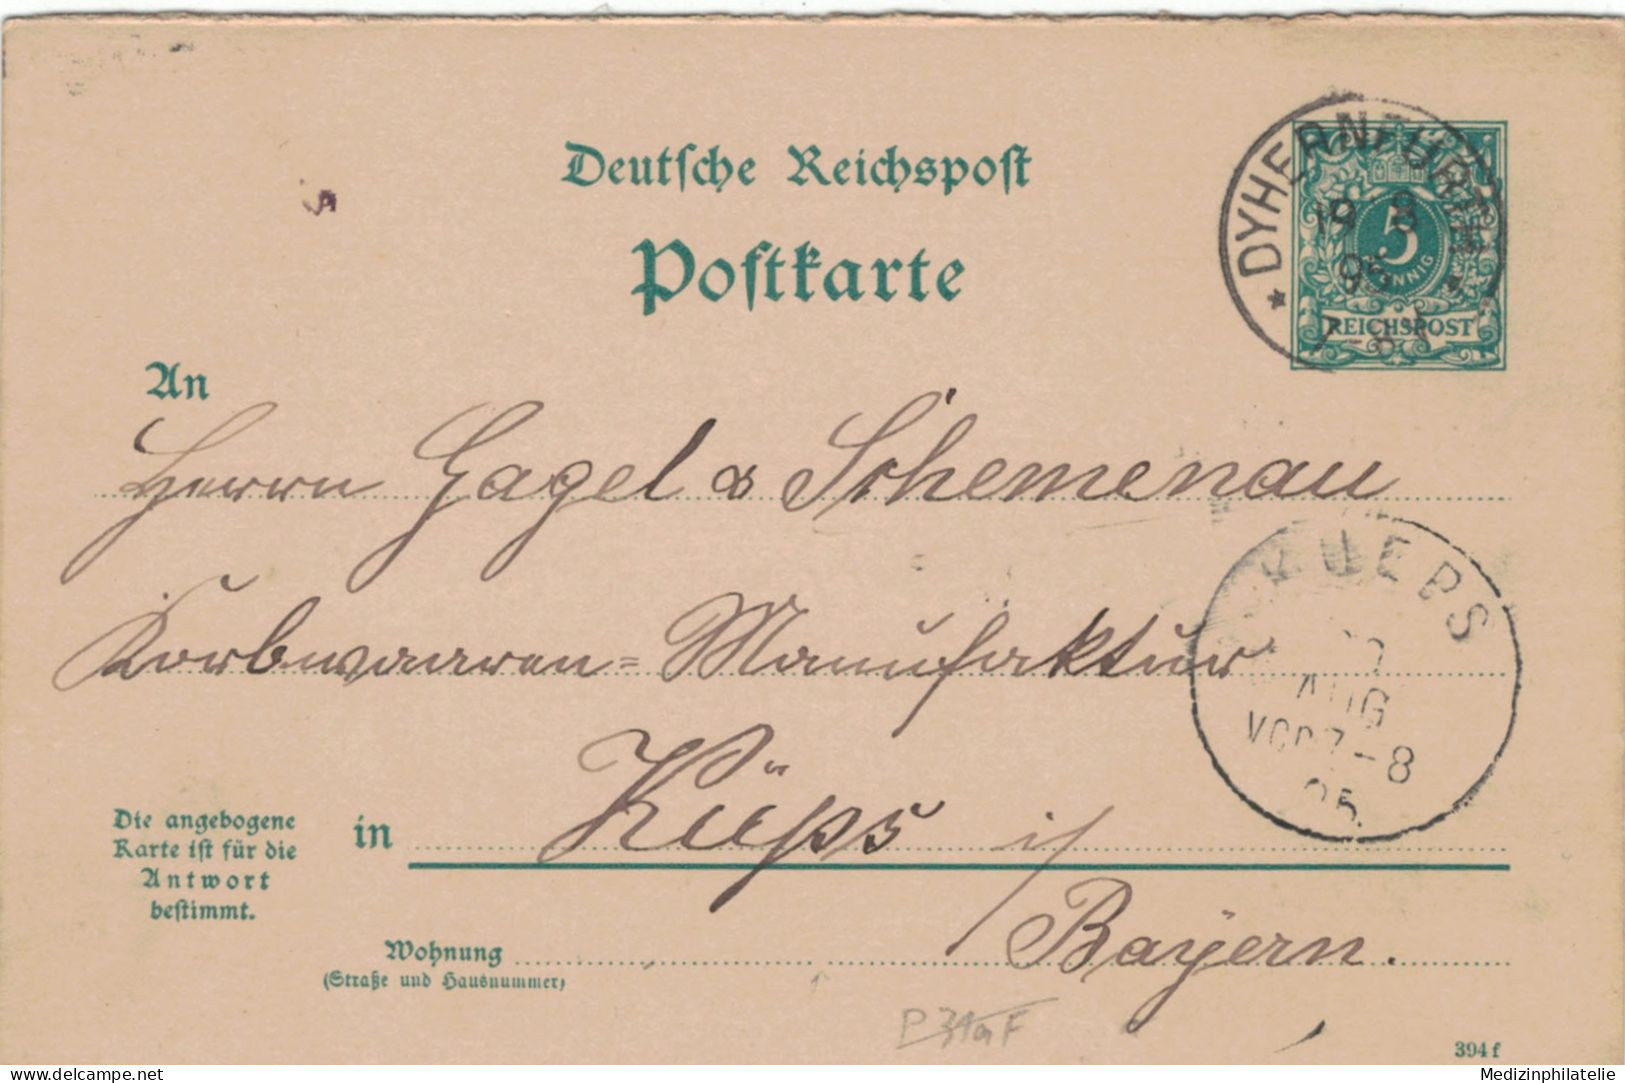 Deutsche Reichspost
Postkarte
* DYHERNFURTH *
19 8
95
7-8 V.
5
PFENNIG
REICHSPOST
An
Herrn Gagel & Schemenau
Korbwaaren = Manufaktur
KUEPS
AUG
VOR 7-8
95
Die angebogene
Karte ist für die
Antwort
bestimmt.
in Küps i/
Bayern.
Wohnung
(Straße und Hausnummer)
P 31a F
394 f
www.delcampe.net
Medizinphilatelie